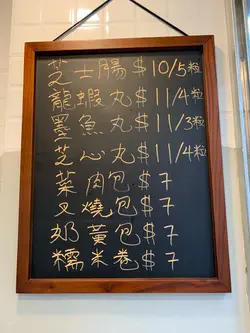 芝士腸$10/5粒
龍蝦丸$11/4粒
墨魚丸$11/3粒
芝心丸$11/4粒
菜肉包$7
叉燒包$7
奶黃包$7
糯米卷$7